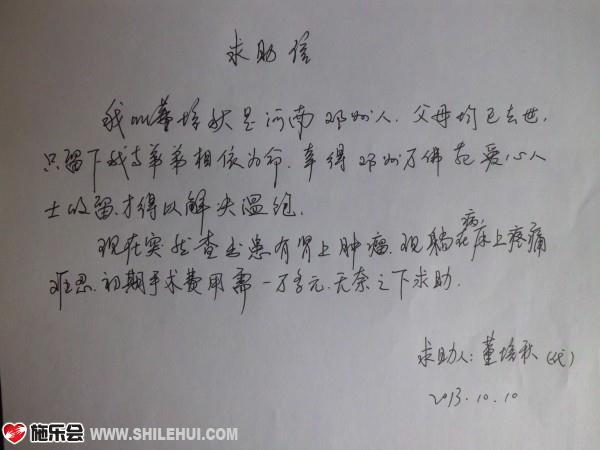 求助信
我叫董培秋是河南邓州人.父母均已去世,
只留下我与弟弟相依为命.幸得邓州万佛苑爱心人
士收留,才得以解决温饱.
现在突然查出患有肾上肿瘤.现躺在病床上疼痛
难忍.初期手术费用需一万多元.无奈之下求助.
求助人:董培秋(代)
2013.10.10
施乐会 WWW.SHILEHUI.COM